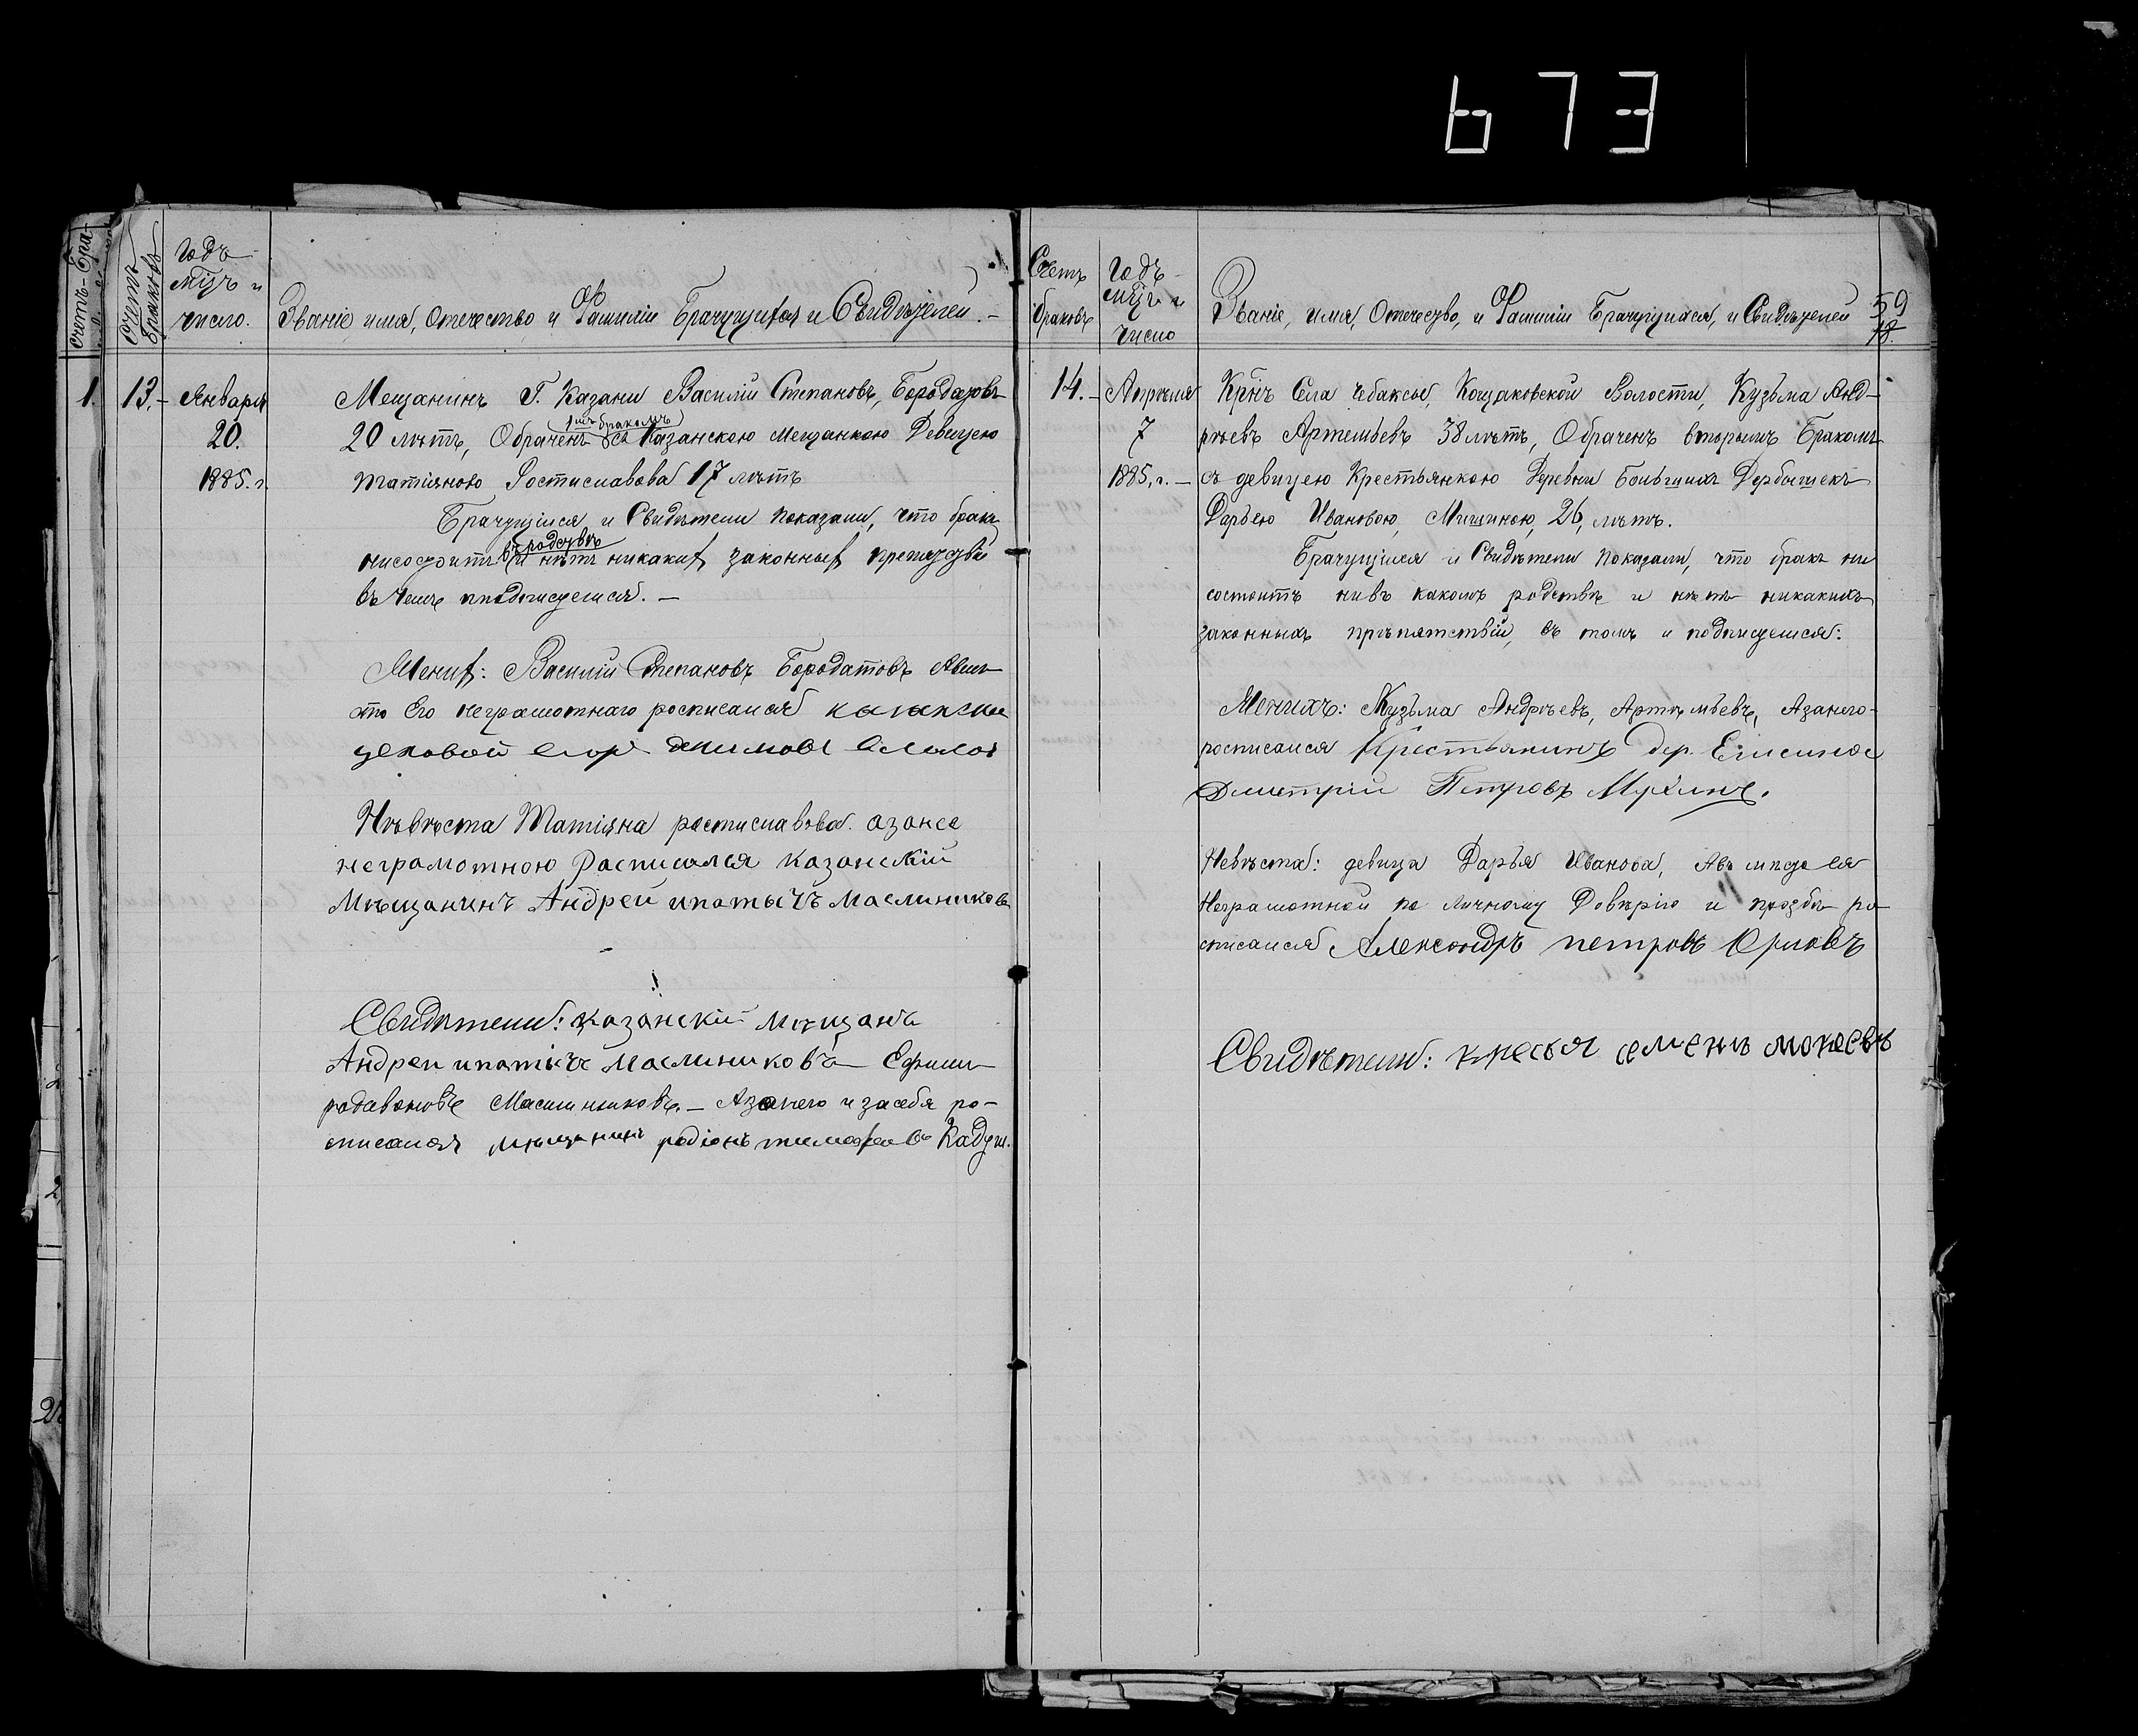 673
Счетъ
Браковъ
Годъ
мц̃ъ и
число.
Званіе, имя, Отечество и Фамиліи Брачущихся и Свидѣтелей. –
1.
13. –
Января
20.
1885. г.
Мещанинъ Г. Казани Василій Степановъ, Бородатовъ
1мъ бракомъ
20 лѣтъ, Обраченъ съ Казанскою мещанкою Девицею
татіяною Ростиславова 17 лѣтъ
Брачущіися и Свидѣтели показали, что бракъ
въ родствѣ
нисостоитъ и нѣтъ никаких законных препятствій
въ чемъ и подписуемся. –
Жених: Василій Степановъ Бородатовъ Авмѣ
сто Его неграмотнаго росписался
цеховой егоръ
Нѣвѣста Матіяна ростиславова. азанее
неграмотною Расписался казанскій
Мѣщанинъ Андрей ипатычъ маслиниковъ
Свидѣтели: казанскій мѣщанъ
Андреи ипатычъ маслиниковъ Ефимъ
родавоновъ Маслиниковъ. – Азанего и засебя ро-
списался мѣщанинъ родіонъ тимофеевъ Кадуш.
Счетъ
браковъ
Годъ
мц̃ъ и
число
Званіе, имя, Отечество, и Фамиліи Брачущийся, и Свидѣтелей
59
78.
14. –
Апрѣля
7
1885, г. –
Крⷭ҇нъ Села Чебаксы, Кощаковской Волости, Кузьма Анд-
рѣевъ Артемьевъ 38 лѣтъ, Обраченъ вторымъ Бракомъ
съ девицею Крестьянкою Деревни Большихъ Дербышекъ
Дарьею Ивановою, Мишиною, 26, лѣтъ.
Брачущіися и Свидѣтели показали, что бракъ ни
состоитъ нивъ какомъ родствѣ и нѣтъ никакихъ
законныхъ прѣпятствій, въ томъ и подписуемся:
Женихъ: Кузьма Андрѣевъ, Артѣмьевъ, Азанего-
росписался Крестьянинъ дер. Елисина
Дмитрій Петровъ Мухинъ.
Невѣста: девица Дарья Иванова, Авъ мѣсто ея
Неграмотной по личному Довѣрію и прозбѣ ро
списался Александръ петровъ Юрловъ
Свидѣтели: кресья семенъ мокеевъ